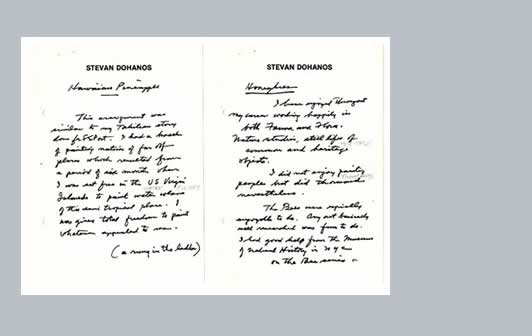 STEVAN DOHANOS
Hawaiian Pineapple
This assignment was
similar to my Tahitian story
done for S&P. I had a
of painting natives of far off
places which resulted from
a period of six months when
I was set free in the US Virgin
Islands to paint water colors
of this semi tropical place. I
was given total freedom to paint
whatever appealed to me.
(a rung in the ladder)
STEVAN DOHANOS
Honeybees
I have enjoyed throughout
my career working happily in
both Fauna and Flora.
Nature studies, still lifes of
common and heritage
objects.
I did not enjoy painting
people but did thousands
nevertheless.
The Bees were especially
enjoyable to do. Any art
well researched was fun to do.
I had good help from the Museum
of Natural History in NYC
on the Bee series